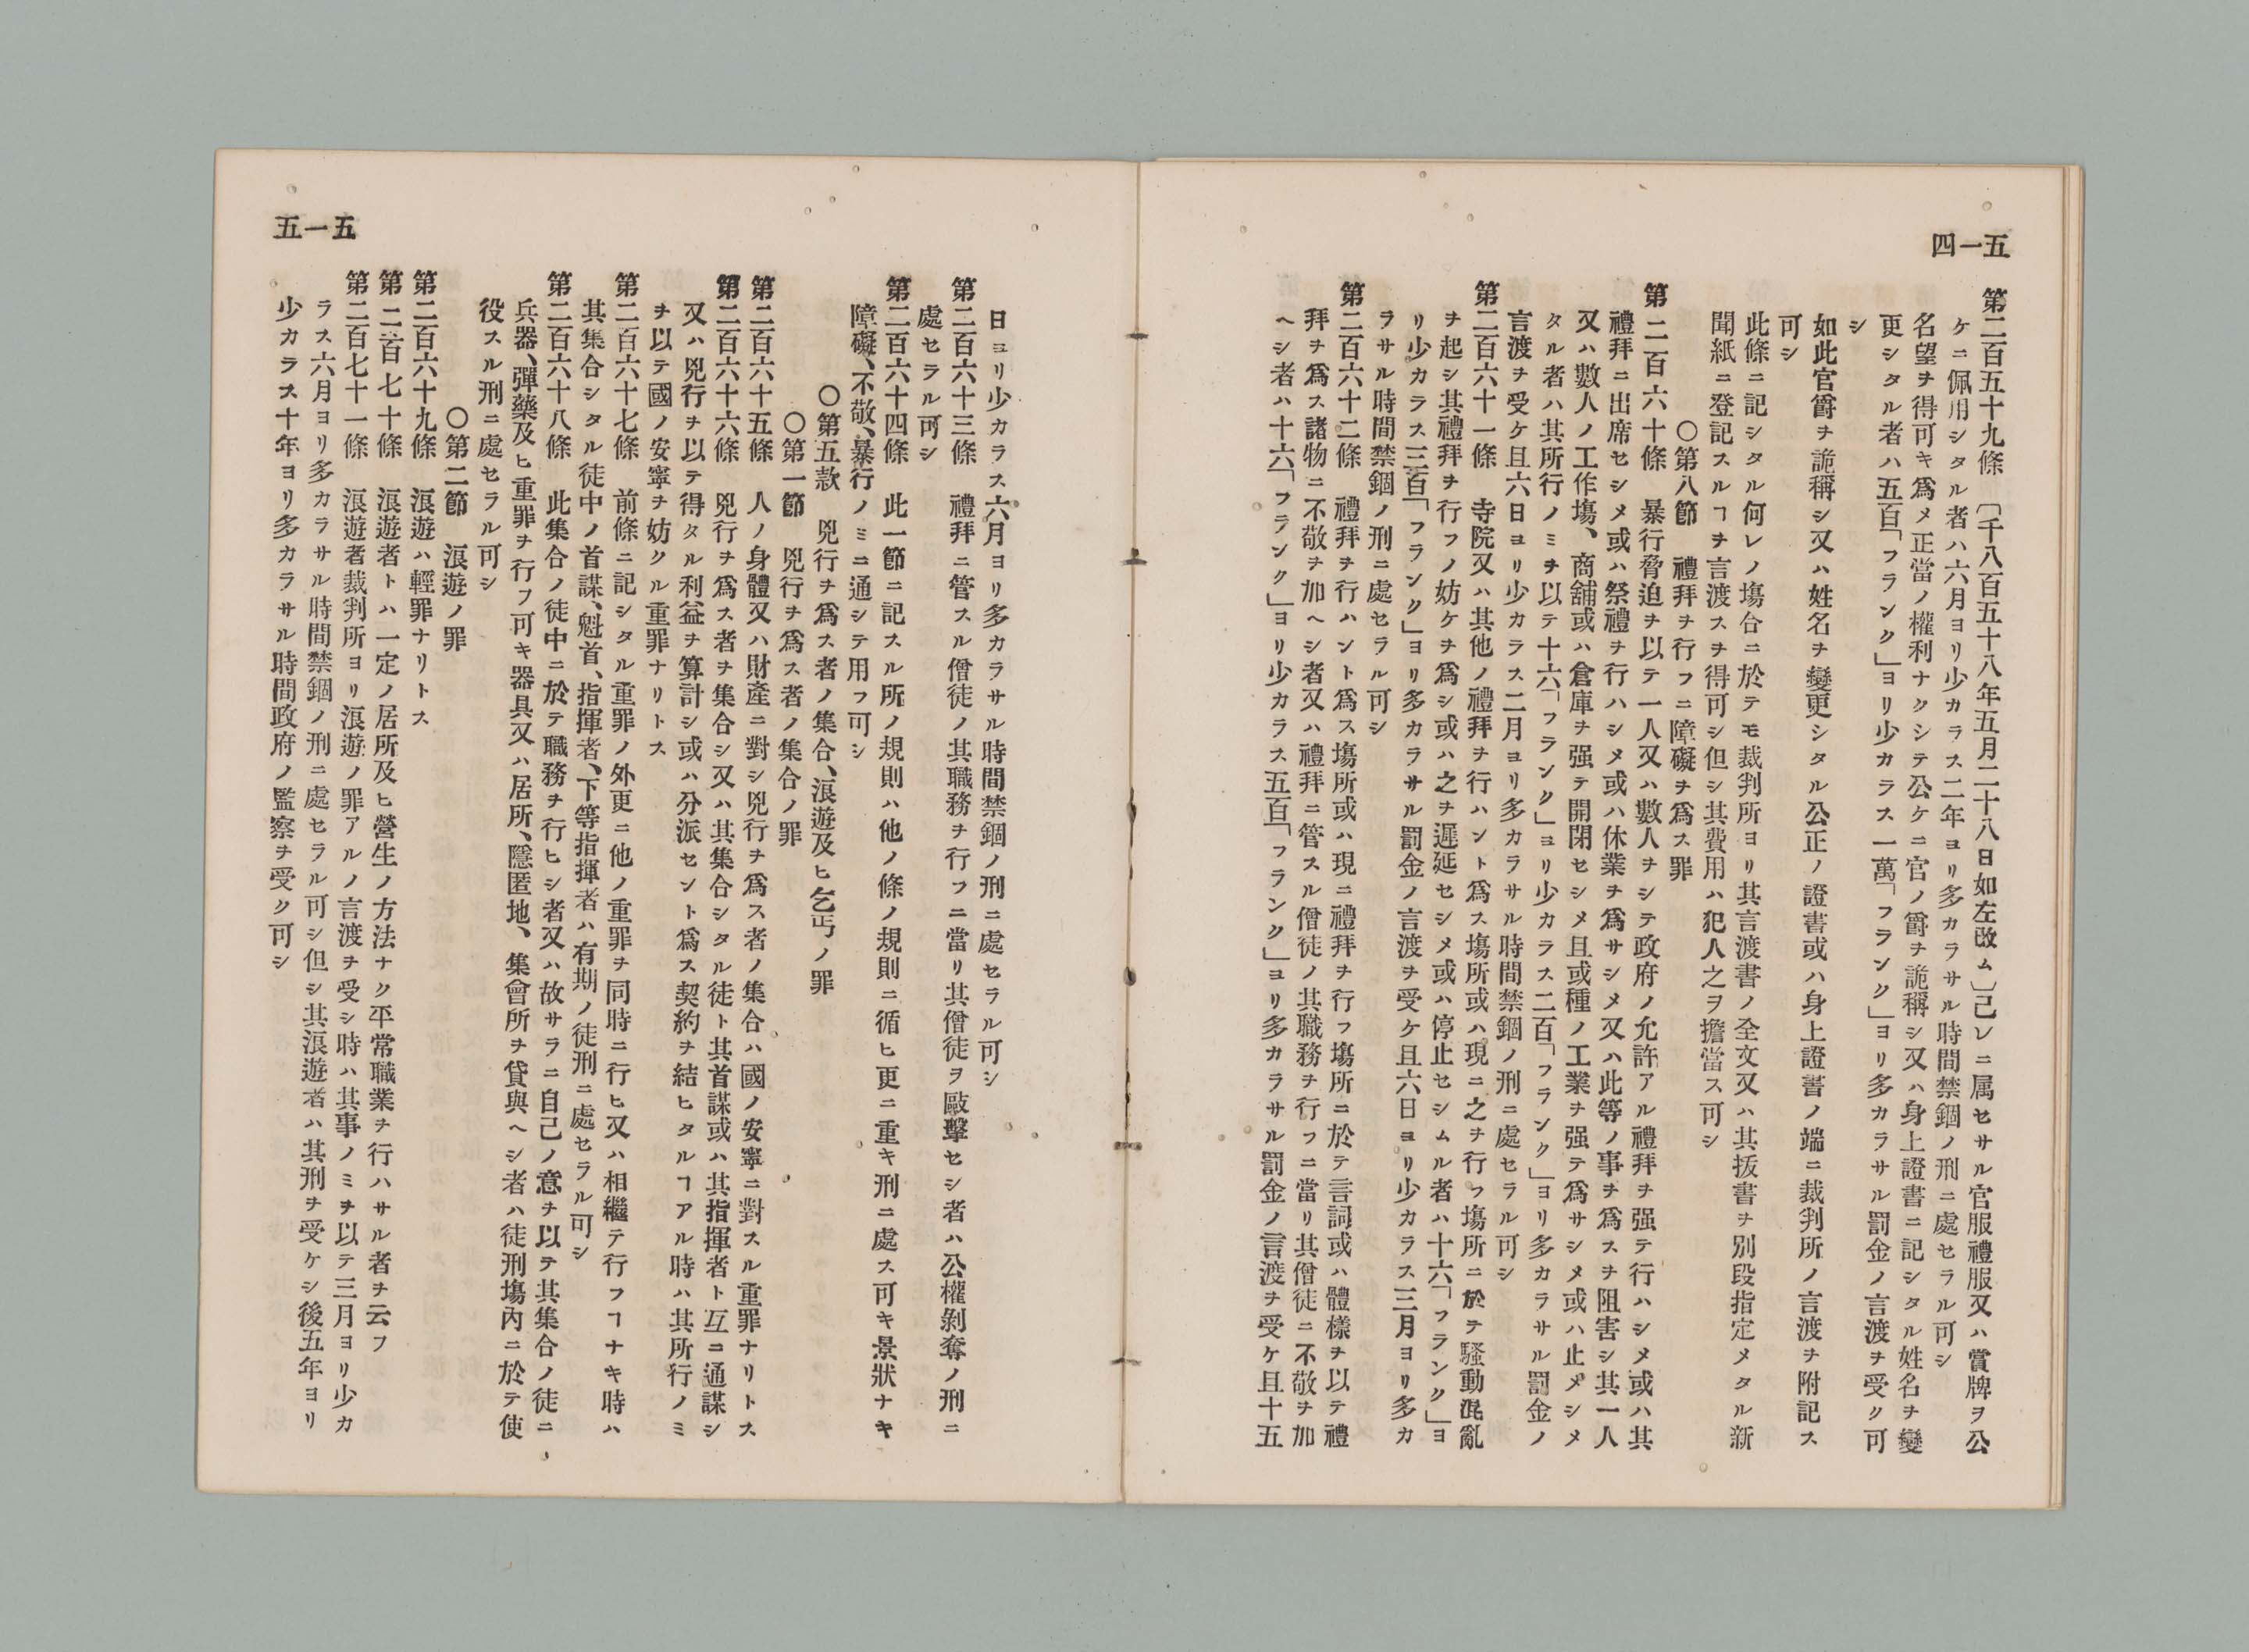 五一四
第二百五十九條　〔千八百五十八年五月二十八日如左改ム〕己レニ属セサル官服禮服又ハ賞牌ヲ公
ケニ佩用シタル者ハ六月ヨリ少カラス二年ヨリ多カラサル時間禁錮ノ刑ニ處セラル可シ
名望ヲ得可キ爲メ正當ノ權利ナクシテ公ケニ官ノ爵ヲ詭稱シ又ハ身上證書ニ記シタル姓名ヲ變
更シタル者ハ五百「フランク」ヨリ少カラス一萬「フランク」ヨリ多カラサル罰金ノ言渡ヲ受ク可
シ
如此官爵ヲ詭稱シ又ハ姓名ヲ變更シタル公正ノ證書或ハ身上證書ノ端ニ裁判所ノ言渡ヲ附記ス
可シ
此條ニ記シタル何レノ塲合ニ於テモ裁判所ヨリ其言渡書ノ全文又ハ其抜書ヲ別段指定メタル新
聞紙ニ登記スルヿヲ言渡スヲ得可シ但シ其費用ハ犯人之ヲ擔當ス可シ
〇第八節　禮拜ヲ行フニ障礙ヲ爲ス罪
第二百六十條　暴行脅迫ヲ以テ一人又ハ數人ヲシテ政府ノ允許アル禮拜ヲ强テ行ハシメ或ハ其
禮拜ニ出席セシメ或ハ祭禮ヲ行ハシメ或ハ休業ヲ爲サシメ又ハ此等ノ事ヲ爲スヲ阻害シ其一人
又ハ數人ノ工作塲、商舖或ハ倉庫ヲ强テ開閉セシメ且或種ノ工業ヲ强テ爲サシメ或ハ止メシメ
タル者ハ其所行ノミヲ以テ十六「フランク」ヨリ少カラス二百「フランク」ヨリ多カラサル罰金ノ
言渡ヲ受ケ且六日ヨリ少カラス二月ヨリ多カラサル時間禁錮ノ刑ニ處セラル可シ
第二百六十一條　寺院又ハ其他ノ禮拜ヲ行ハント爲ス塲所或ハ現ニ之ヲ行フ塲所ニ於テ騷動混亂
ヲ起シ其禮拜ヲ行フノ妨ケヲ爲シ或ハ之ヲ遲延セシメ或ハ停止セシムル者ハ十六「フランク」ヨ
リ少カラス三百「フランク」ヨリ多カラサル罰金ノ言渡ヲ受ケ且六日ヨリ少カラス三月ヨリ多カ
ラサル時間禁錮ノ刑ニ處セラル可シ
第二百六十二條　禮拜ヲ行ハント爲ス塲所或ハ現ニ禮拜ヲ行フ塲所ニ於テ言詞或ハ體樣ヲ以テ禮
拜ヲ爲ス諸物ニ不敬ヲ加ヘシ者又ハ禮拜ニ管スル僧徒ノ其職務ヲ行フニ當リ其僧徒ニ不敬ヲ加
ヘシ者ハ十六「フランク」ヨリ少カラス五百「フランク」ヨリ多カラサル罰金ノ言渡ヲ受ケ且十五
五一五
日ヨリ少カラス六月ヨリ多カラサル時間禁錮ノ刑ニ處セラル可シ
第二百六十三條　禮拜ニ管スル僧徒ノ其職務ヲ行フニ當リ其僧徒ヲ毆擊セシ者ハ公權剝奪ノ刑ニ
處セラル可シ
第二百六十四條　此一節ニ記スル所ノ規則ハ他ノ條ノ規則ニ循ヒ更ニ重キ刑ニ處ス可キ景狀ナキ
障礙、不敬、暴行ノミニ通シテ用フ可シ
〇第五款　兇行ヲ爲ス者ノ集合、浪遊及ヒ乞丐ノ罪
〇第一節　兇行ヲ爲ス者ノ集合ノ罪
第二百六十五條　人ノ身體又ハ財產ニ對シ兇行ヲ爲ス者ノ集合ハ國ノ安寧ニ對スル重罪ナリトス
第二百六十六條　兇行ヲ爲ス者ヲ集合シ又ハ其集合シタル徒ト其首謀或ハ其指揮者ト互ニ通謀シ
又ハ兇行ヲ以テ得タル利益ヲ算計シ或ハ分派セント爲ス契約ヲ結ヒタルヿアル時ハ其所行ノミ
ヲ以テ國ノ安寧ヲ妨クル重罪ナリトス
第二百六十七條　前條ニ記シタル重罪ノ外更ニ他ノ重罪ヲ同時ニ行ヒ又ハ相繼テ行フヿナキ時ハ
其集合シタル徒中ノ首謀、魁首、指揮者、下等指揮者ハ有期ノ徒刑ニ處セラル可シ
第二百六十八條　此集合ノ徒中ニ於テ職務ヲ行ヒシ者又ハ故サラニ自己ノ意ヲ以テ其集合ノ徒ニ
兵器、彈藥及ヒ重罪ヲ行フ可キ器具又ハ居所、隱匿地、集會所ヲ貸與ヘシ者ハ徒刑塲內ニ於テ使
役スル刑ニ處セラル可シ
〇第二節　浪遊ノ罪
第二百六十九條　浪遊ハ輕罪ナリトス
第二百七十條　浪遊者トハ一定ノ居所及ヒ營生ノ方法ナク平常職業ヲ行ハサル者ヲ云フ
第二百七十一條　浪遊者裁判所ヨリ浪遊ノ罪アルノ言渡ヲ受シ時ハ其事ノミヲ以テ三月ヨリ少カ
ラス六月ヨリ多カラサル時間禁錮ノ刑ニ處セラル可シ但シ其浪遊者ハ其刑ヲ受ケシ後五年ヨリ
少カラス十年ヨリ多カラサル時間政府ノ監察ヲ受ク可シ